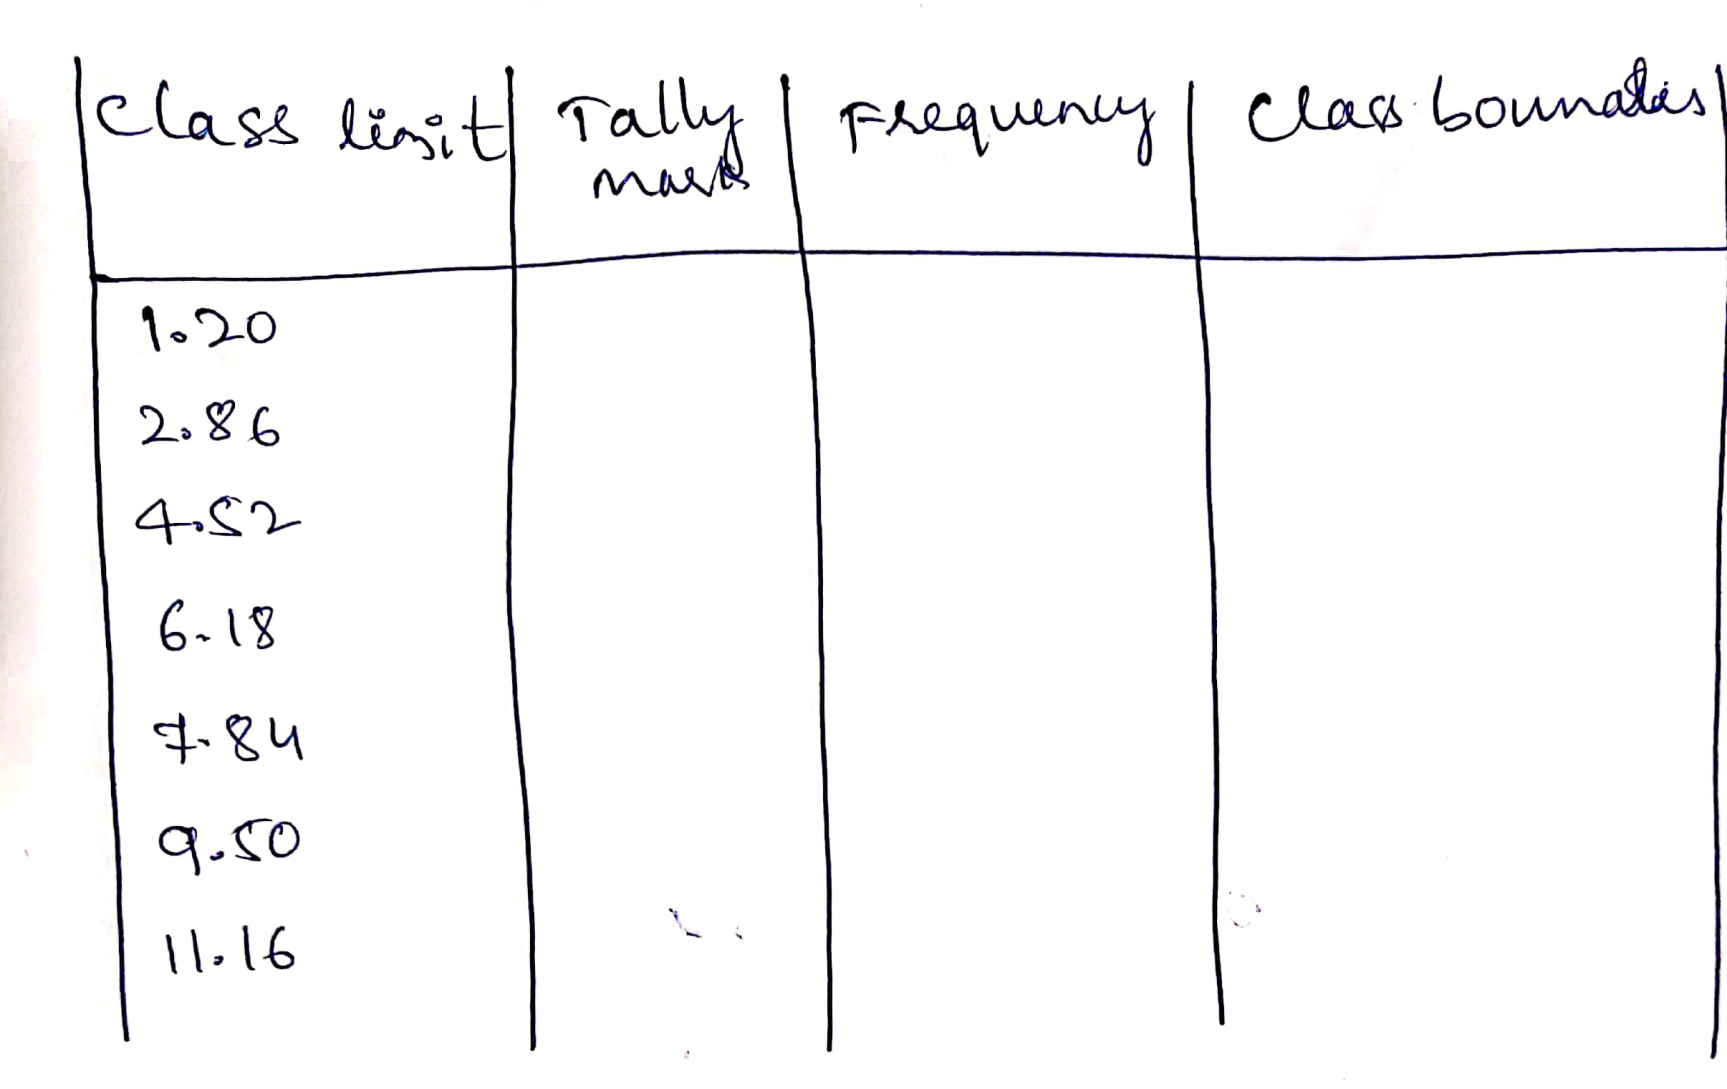 Class limit Tally Frequency Class boundaries
marks
1.20
2.86
4.52
6.18
7.84
9.50
11.16